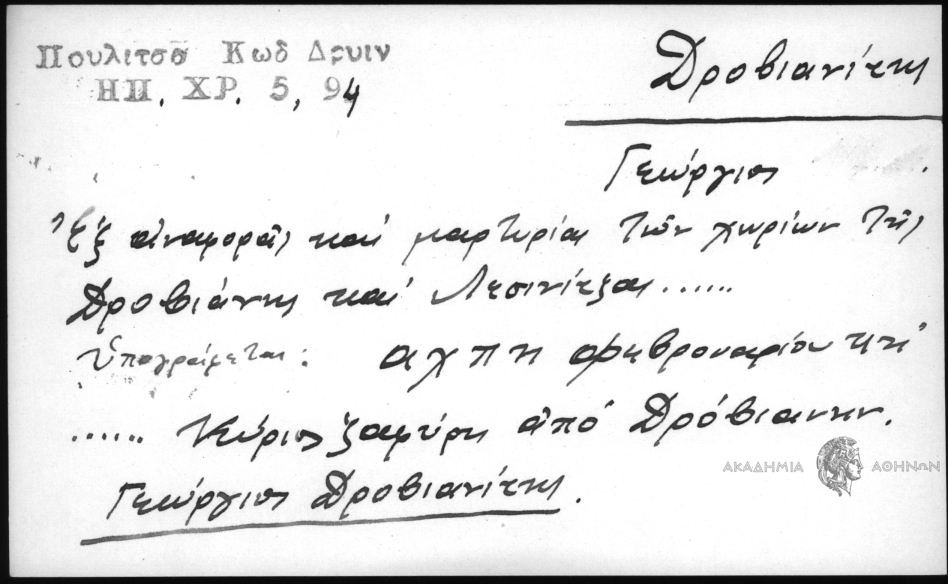 Πουλιτσα Κωδ Δρυιν
ΗΠ. ΧΡ. 5, 94
Δροβιανίτης
Γεώργιος
Ἐξ ἀναφορᾶς καί μαρτυρίας τῶν χωρίων τῆς
Δροβιάνης καί Λεσινίτζας......
Ὑπογράφεται: αχπη φεβρουαρίου κη
...... Κύριος ζαφύρη ἀπό Δρόβιανην.
Γεώργιος Δροβιανίτης.
ΑΚΑΔΗΜΙΑ ΑΘΗΝΩΝ